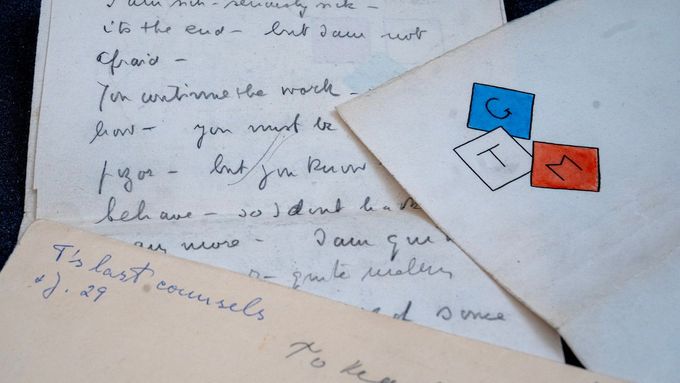 I am sick - seriously sick -
it's the end - but I am not
afraid -
You continue the work -
how - you must be
but you know
behave - so I dont have
any more - I am qui
- quite
since
G
T
M
T's last counsels
29
To